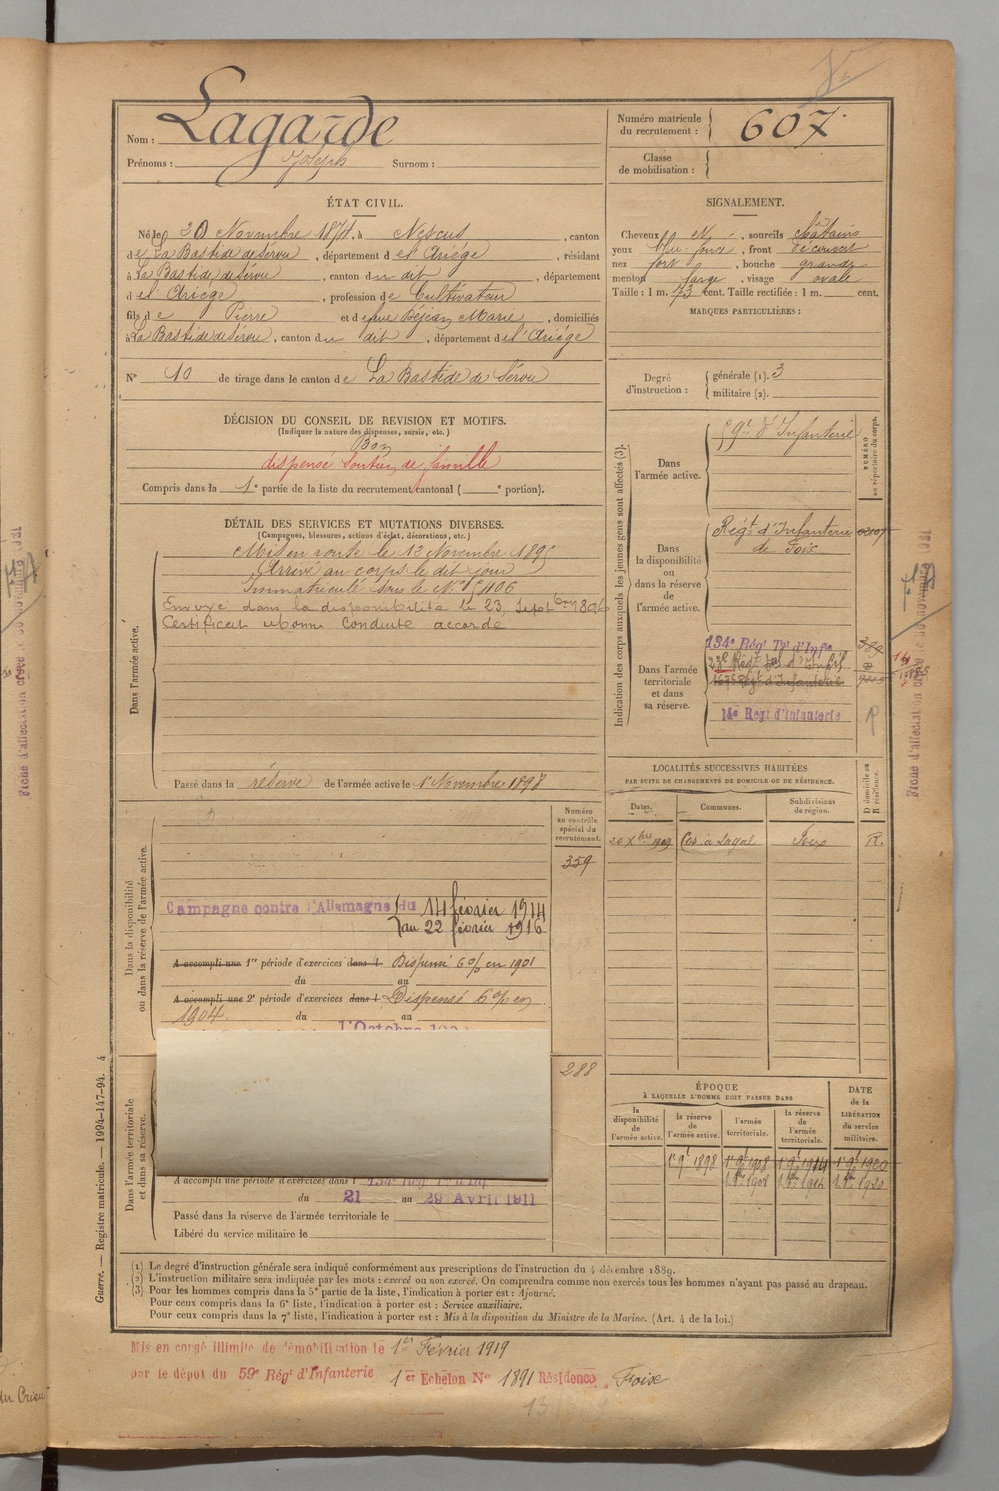 Nom : Lagarde
Prénoms : Joseph Surnom :
Numéro matricule du recrutement : 607
Classe de mobilisation :
ÉTAT CIVIL.
Né le 20 Novembre 1874, à Nescus, canton
de La Bastide de Sérou, département de l'Ariége, résidant
à La Bastide de Sérou, canton du dit, département
d el Ariége, profession de Cultivateur
fils de Pierre et d Béjean Marie, domiciliés
à La Bastide de Sérou, canton du dit, département de l'Ariége
N° 10 de tirage dans le canton de La Bastide de Sérou
SIGNALEMENT.
Cheveux N, sourcils châtains
yeux bleu foncé, front découvert
nez fort, bouche grande
menton large, visage ovale
Taille : 1 m. 73 cent. Taille rectifiée : 1 m. cent.
MARQUES PARTICULIÈRES :
Degré d'instruction : générale (1). 3
militaire (2).
DÉCISION DU CONSEIL DE REVISION ET MOTIFS.
(Indiquer la nature des dispenses, sursis, etc.)
Bon
dispensé soutien de famille
Compris dans la 1e partie de la liste du recrutement cantonal ( e portion).
DÉTAIL DES SERVICES ET MUTATIONS DIVERSES.
(Campagnes, blessures, actions d'éclat, décorations, etc.)
Dans l'armée active.
Mis en route le 13 Novembre 1895
Arrivé au corps le dit jour
Immatriculé sous le N°
Envoyé dans la disponibilité le 23 Septbre 1896
Certificat bonne conduite accordé
Passé dans la réserve de l'armée active le 1 Novembre 1898
Indication des corps auxquels les jeunes gens sont affectés (3).
NUMÉRO au répertoire du corps.
Dans l'armée active.
59e d'Infanterie
Dans la disponibilité ou dans la réserve de l'armée active.
Régt d'Infanterie
de Foix
Dans l'armée territoriale et dans sa réserve.
134e Régt Tal d'Infie
14e Regt d'Infanterie
R
LOCALITÉS SUCCESSIVES HABITÉES
PAR SUITE DE CHANGEMENTS DE DOMICILE OU DE RÉSIDENCE.
Dates. Communes. Subdivisions de région. D domicile ou R résidence.
20 Xbre 1909 Foix R.
Dans la disponibilité ou dans la réserve de l'armée active.
Numéro au contrôle spécial du recrutement.
359
Campagne contre l'Allemagne du 14 février 1914
au 22 février 1916
A accompli une 1re période d'exercices dans l Dispensé 6% en 1901
du au
A accompli une 2e période d'exercices dans l Dispensé 6% en
1904 du au
288
Dans l'armée territoriale et dans sa réserve.
A accompli une période d'exercices dans l 134e Rég
du 21 au 29 Avril 1911
Passé dans la réserve de l'armée territoriale le
Libéré du service militaire le
ÉPOQUE
À LAQUELLE L'HOMME DOIT PASSER DANS
la disponibilité de l'armée active. la réserve de l'armée active. l'armée territoriale. la réserve de l'armée territoriale.
DATE de la LIBÉRATION du service militaire.
1 9e 1898 1 9e 1908 1 9e 1914 1 9e 1920
(1) Le degré d'instruction générale sera indiqué conformément aux prescriptions de l'instruction du 4 décembre 1889.
(2) L'instruction militaire sera indiquée par les mots : exercé ou non exercé. On comprendra comme non exercés tous les hommes n'ayant pas passé au drapeau.
(3) Pour les hommes compris dans la 5e partie de la liste, l'indication à porter est : Ajourné.
Pour ceux compris dans la 6e liste, l'indication à porter est : Service auxiliaire.
Pour ceux compris dans la 7e liste, l'indication à porter est : Mis à la disposition du Ministre de la Marine. (Art. 4 de la loi.)
Guerre. — Registre matricule. — 1994-147-94. 4
Mis en congé illimité de démobilisation le 1er Février 1919
par le dépôt du 59e Régt d'Infanterie 1er Echelon No 1891 Résidence Foix